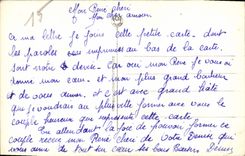 Mon René chéri
Mon cher amour.
À ma lettre je joins cette petite carte dont
les paroles sont imprimées au bas de la carte.
sont notre devise. Car oui mon René je vous ai
donné mon cœur et mon plus grand bonheur
et de vous aimer. et c'est avec grand hâte
que je voudrai au plus vite former avec vous le
couple heureux que représente cette carte.
En attendant la joie de pouvoir former ce
couple recevez mon René chéri de votre Denise qui
vous aime de tout son cœur ses bons baisers Denise